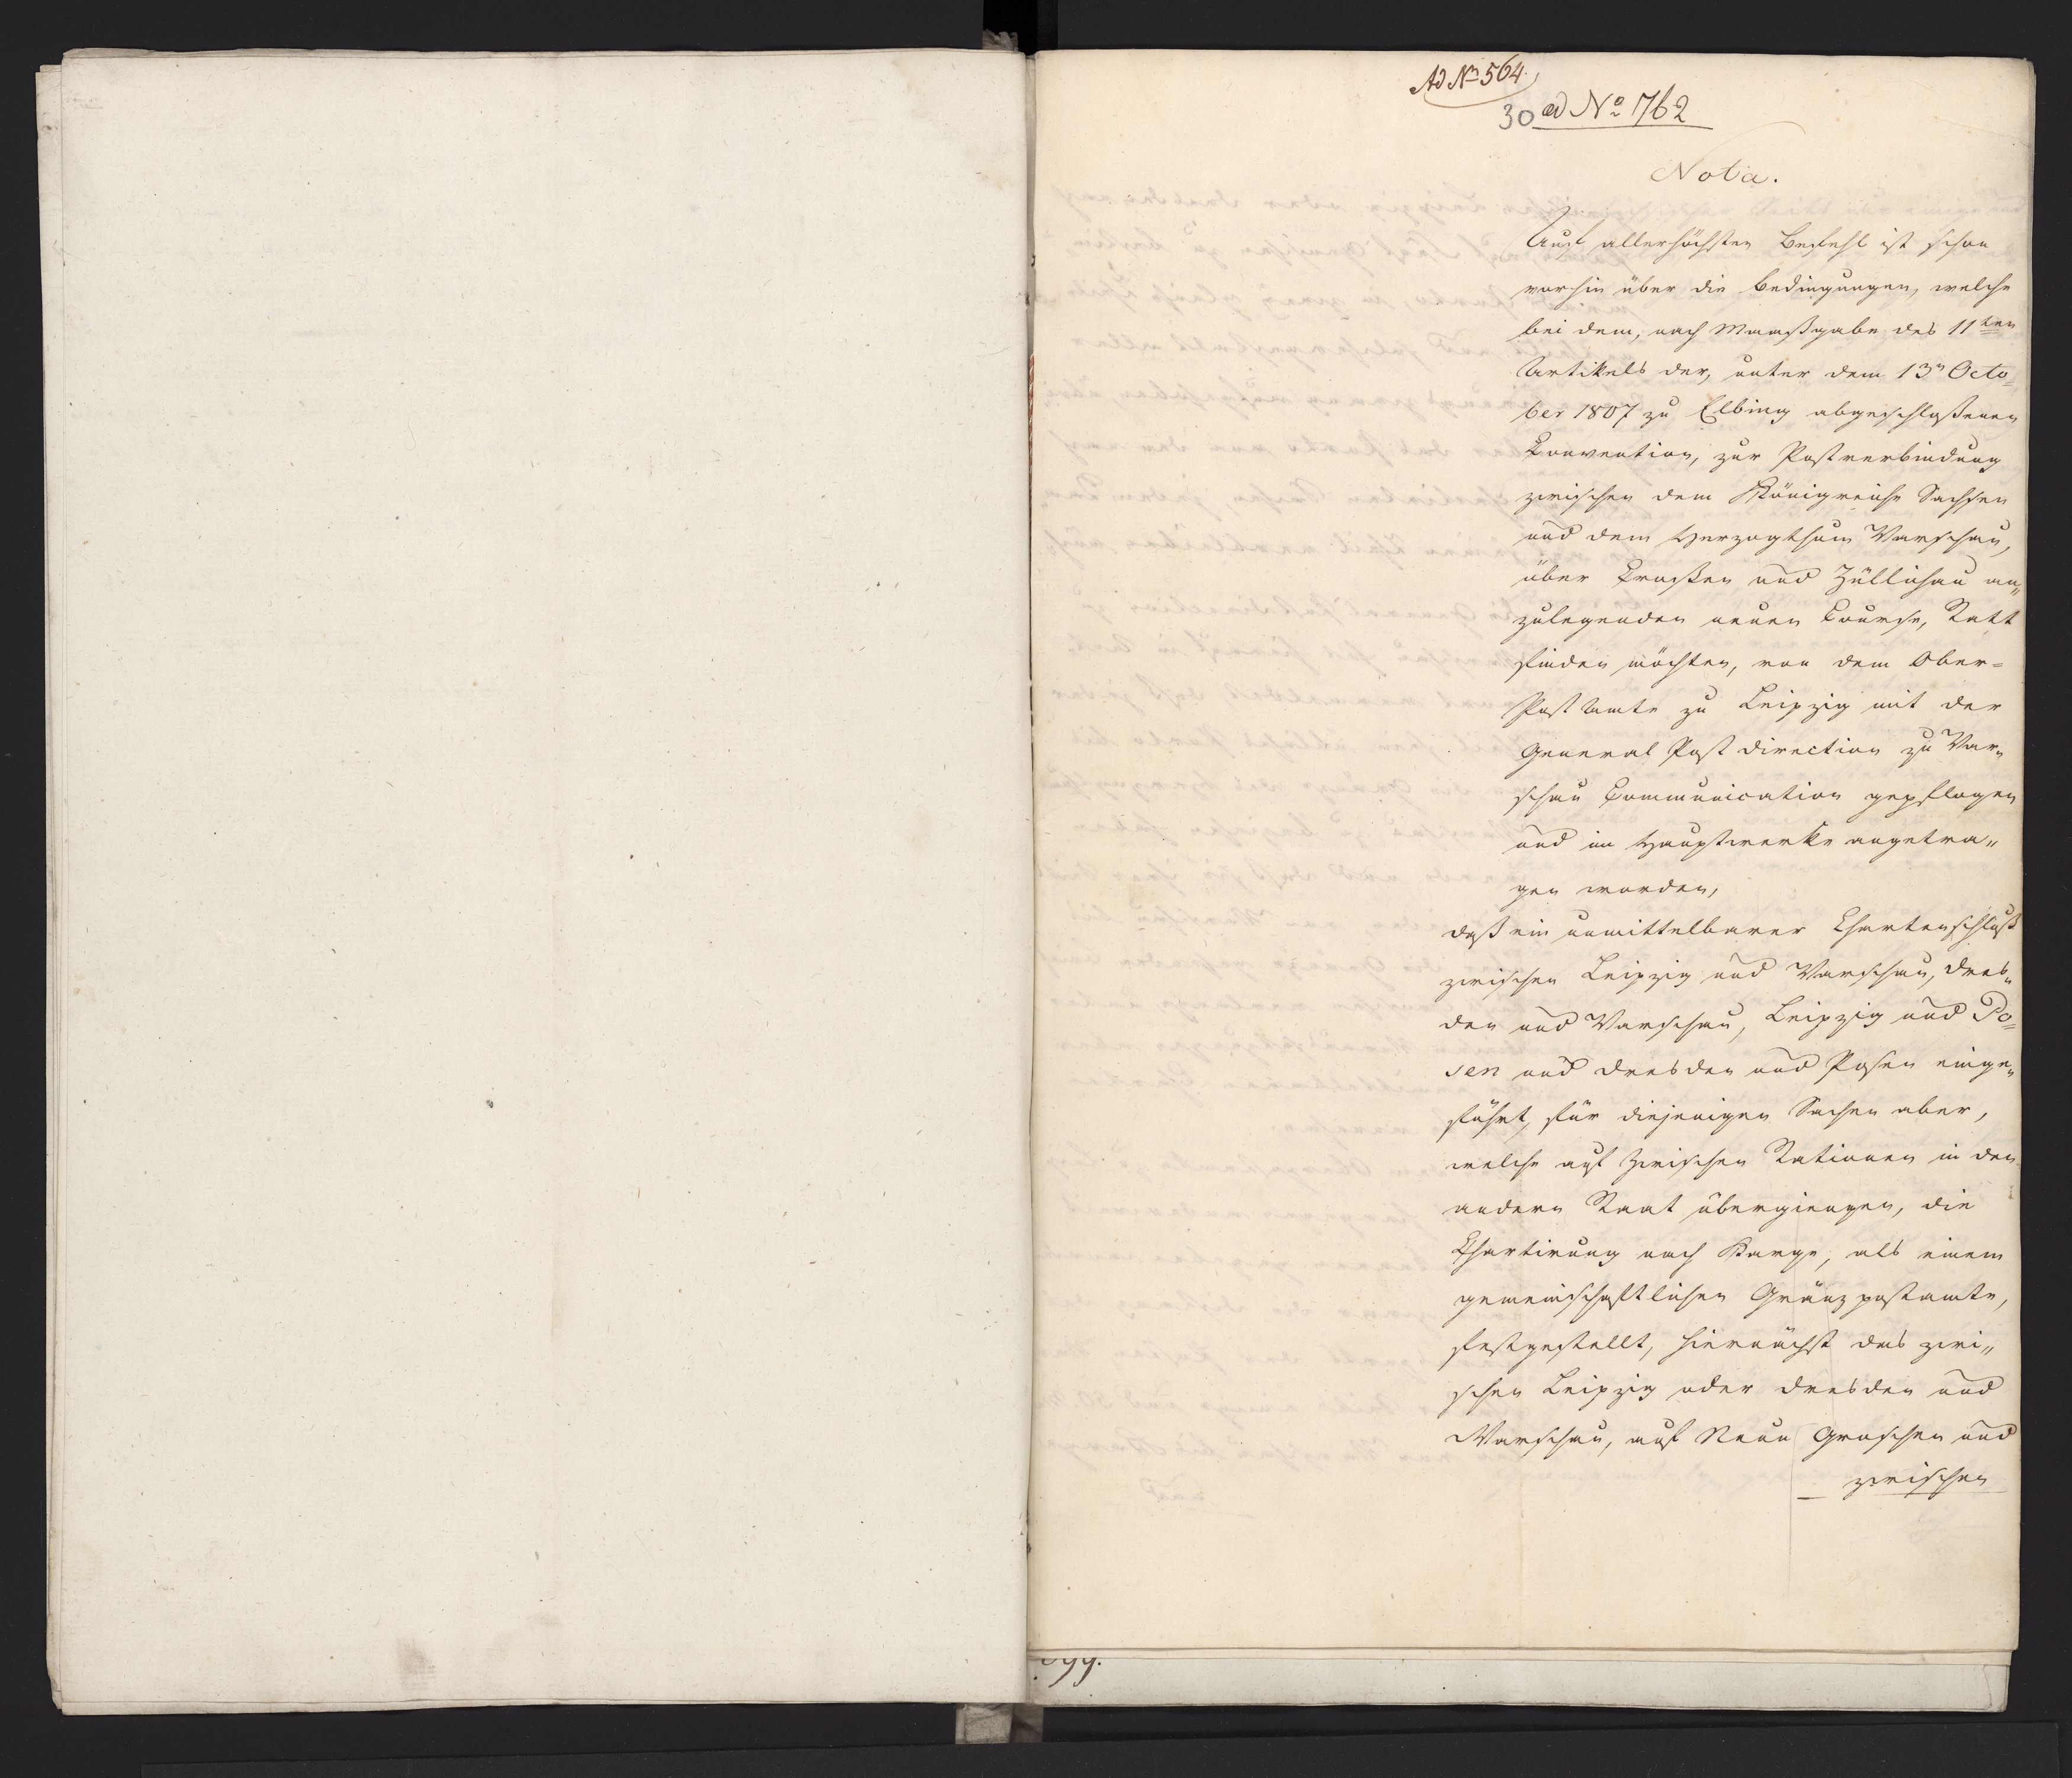 Ad No 564.
30 ad No 762
Nota.
Auf allerhöchsten Befehl ist schon
vorhin über die Bedingungen, welche
bei dem, nach Maaßgabe des 11ten
Artikels der, unter dem 13n Octo=
ber 1807 zu Elbing abgeschloßenen
Convention, zur Postverbindung
zwischen dem Königreiche Sachsen
und dem Herzogthum Warschau,
über Croßen und Züllichau an„
zulegenden neuen Course, Statt
finden möchten, von dem Ober=
Post Amte zu Leipzig mit der
General Post Direction zu War„
schau Communication gepflogen
und im Hauptwerke angetra„
gen worden,
daß ein unmittelbarer Chartenschluß
zwischen Leipzig und Warschau, Dres„
den und Warschau, Leipzig und Po=
sen und Dresden und Posen einge„
führt, für diejenigen Sachen aber,
welche auf Zwischen Stationen in den
andern Staat übergiengen, die
Chartirung nach Karge, als einem
gemeinschaftlichen Gränzpostamte,
festgestellt, hiernächst das zwi„
schen Leipzig oder Dresden und
Warschau, auf Neun Groschen und
zwischen